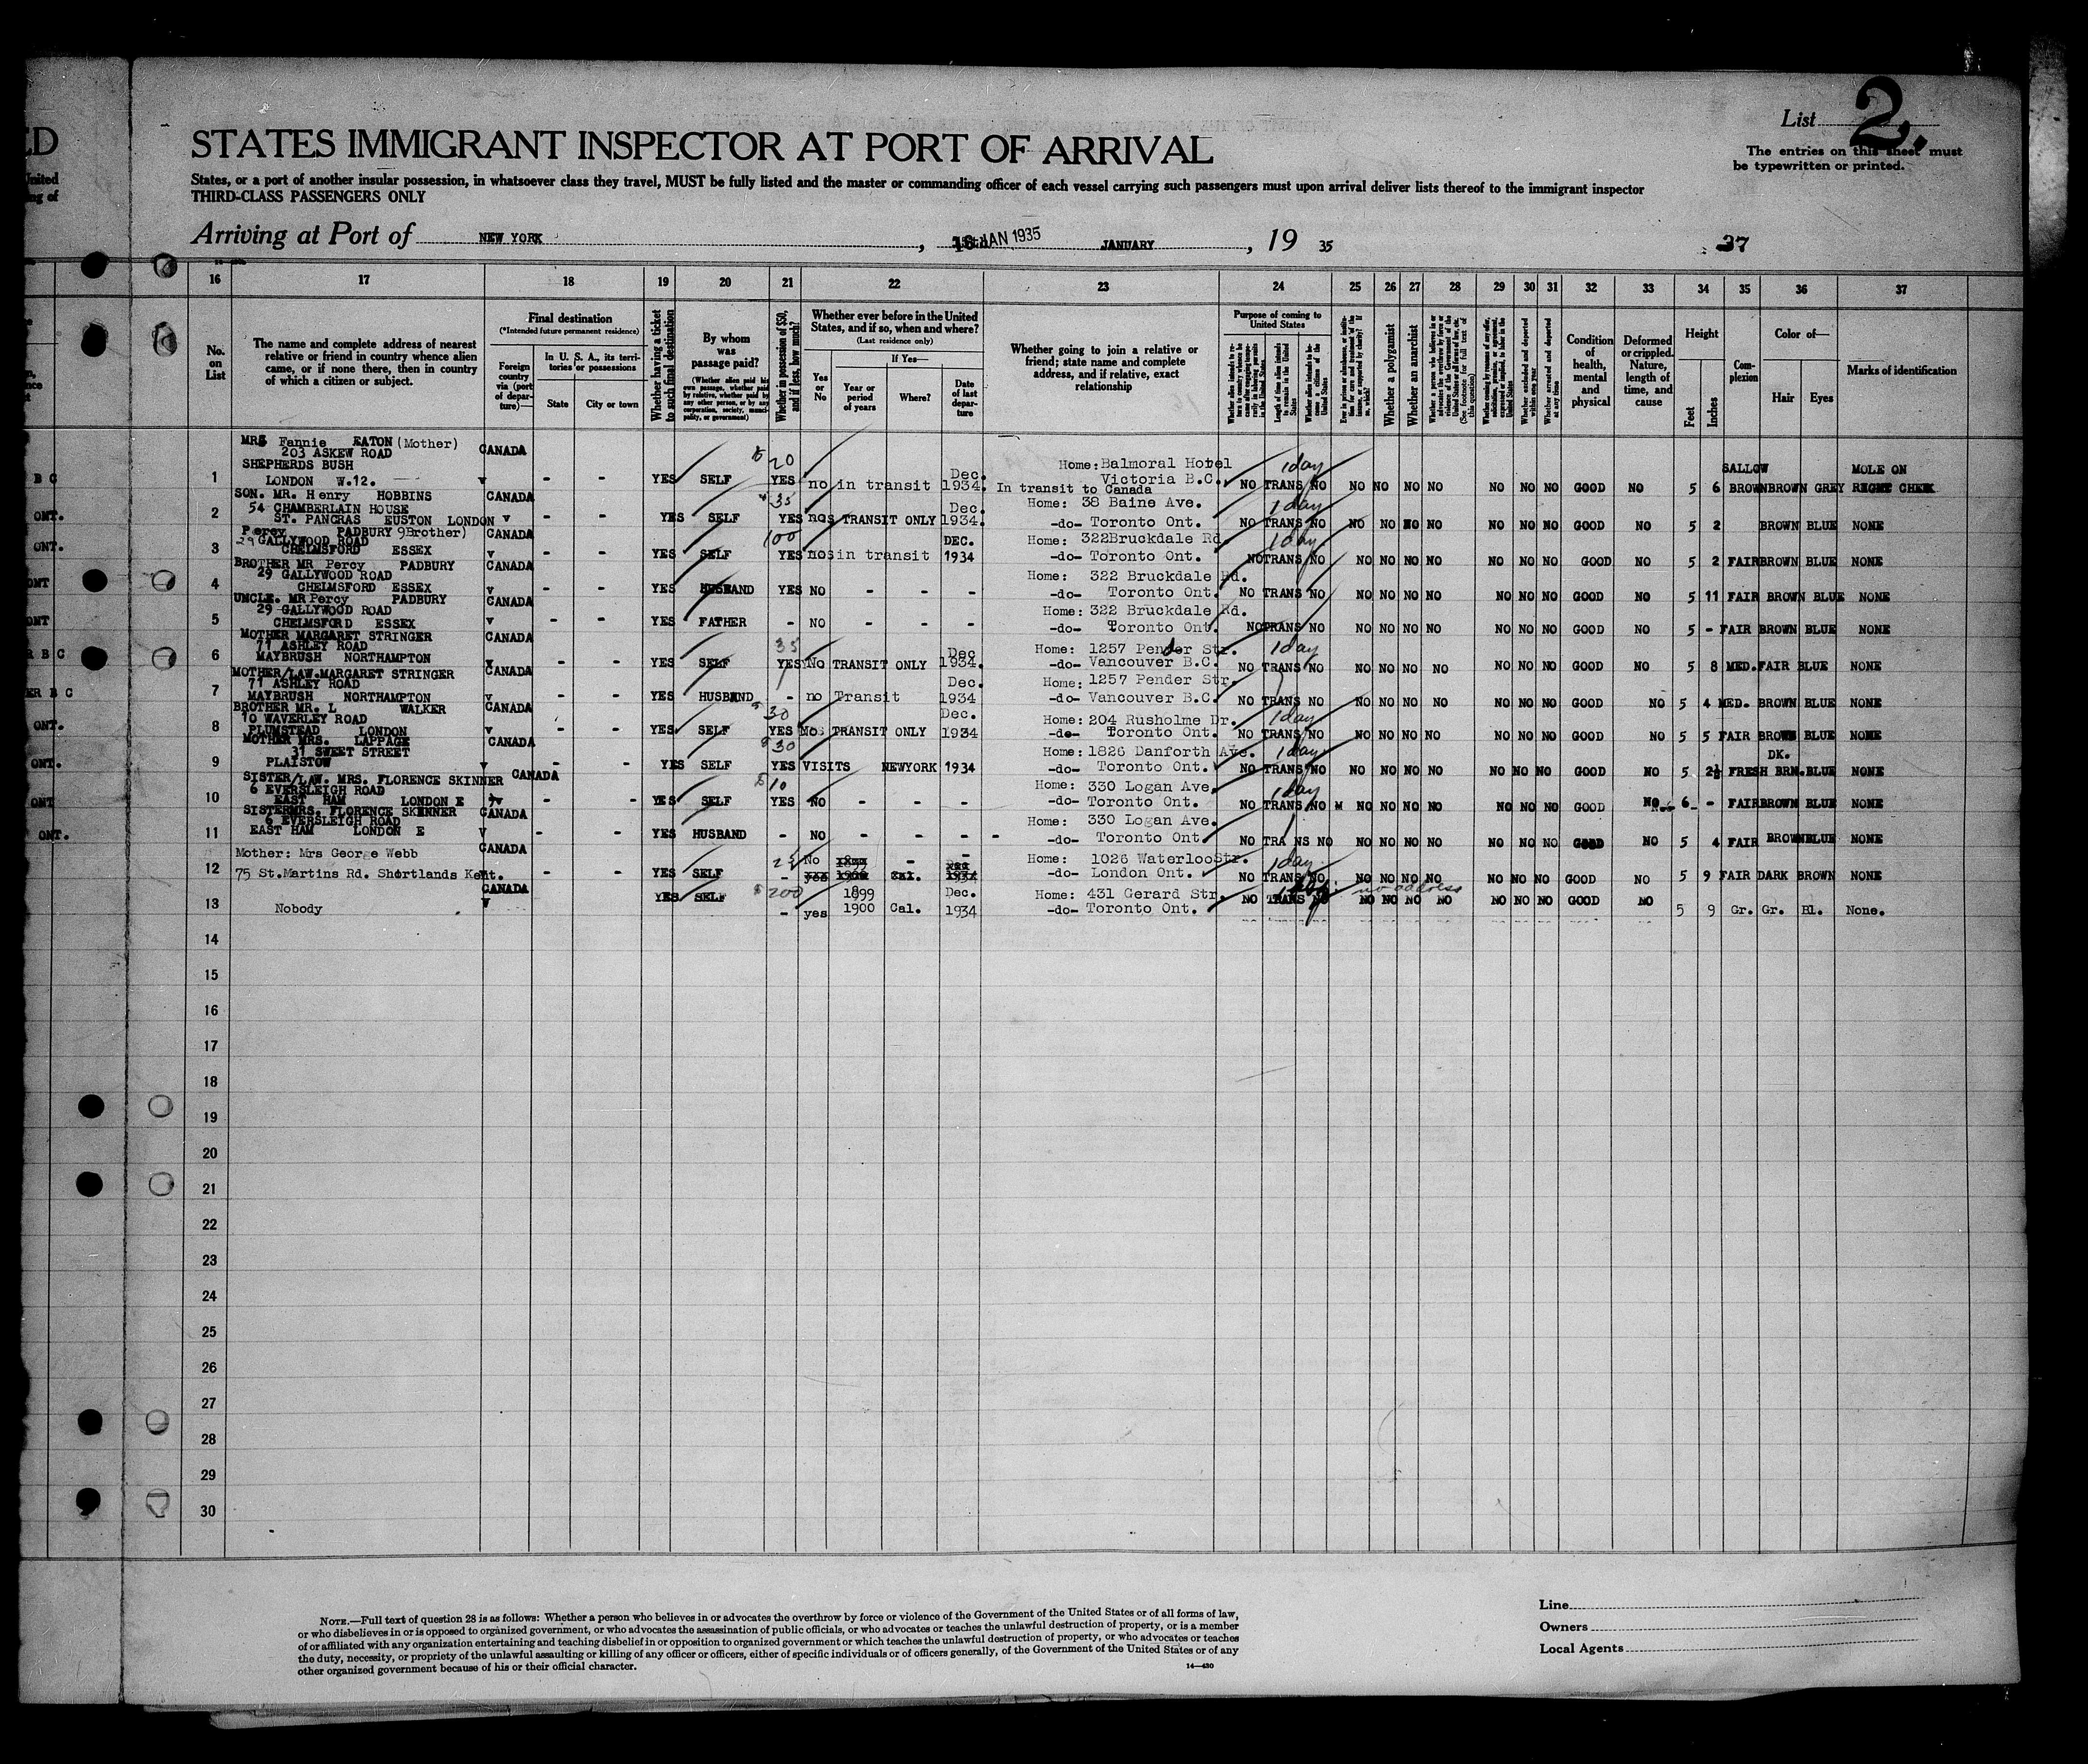 ED
STATES IMMIGRANT INSPECTOR AT PORT OF ARRIVAL
List 2.
The entries on this sheet must
be typewritten or printed.
States, or a port of another insular possession, in whatsoever class they travel, MUST be fully listed and the master or commanding officer of each vessel carrying such passengers must upon arrival deliver lists thereof to the immigrant inspector
THIRD-CLASS PASSENGERS ONLY
Arriving at Port of NEW YORK, JAN 1935 JANUARY, 19 35
37
16 17 18 19 20 21 22 23 24 25 26 27 28 29 30 31 32 33 34 35 36 37
No. on List
The name and complete address of nearest relative or friend in country whence alien came, or if none there, then in country of which a citizen or subject.
Final destination
(*Intended future permanent residence)
Foreign country via (port of departure)—
In U. S. A., its territories or possessions
State
City or town
Whether having a ticket to such final destination
By whom was passage paid?
(Whether alien paid his own passage, whether paid by relative, whether paid by any other person, or by any corporation, society, municipality, or government)
Whether in possession of $50, and if less, how much?
Whether ever before in the United States, and if so, when and where?
(Last residence only)
Yes or No
If Yes—
Year or period of years
Where?
Date of last departure
Whether going to join a relative or friend; state name and complete address, and if relative, exact relationship
Purpose of coming to United States
Whether a polygamist
Whether an anarchist
Condition of health, mental and physical
Deformed or crippled. Nature, length of time, and cause
Height
Feet
Inches
Complexion
Color of—
Hair
Eyes
Marks of identification
MRS Fannie EATON (Mother)
203 ASKEW ROAD CANADA
SHEPHERDS BUSH 20 Home: Balmoral Hotel 1 day SALLOW MOLE ON
1 LONDON W.12. v - - YES SELF YES no in transit Dec. 1934. Victoria B.C. NO TRANS NO NO NO NO NO NO NO NO GOOD NO 5 6 BROWN BROWN GREY RIGHT CHEEK
In transit to Canada
SON. MR. Henry HOBBINS CANADA 35 Home: 38 Baine Ave. 1 day
2 54 CHAMBERLAIN HOUSE
ST. PANCRAS EUSTON LONDON v - - YES SELF YES TRANSIT ONLY Dec. 1934. -do- Toronto Ont. NO TRANS NO NO NO NO NO NO NO NO GOOD NO 5 2 BROWN BLUE NONE
Percy PADBURY 9Brother) CANADA 100 DEC. Home: 322Bruckdale Rd. 1 day
3 29 GALLYWOOD ROAD
CHELMSFORD ESSEX v - - YES SELF YES in transit 1934 -do- Toronto Ont. NO TRANS NO NO NO NO NO NO NO NO GOOD NO 5 2 FAIR BROWN BLUE NONE
BROTHER MR Percy PADBURY CANADA
4 29 GALLYWOOD ROAD Home: 322 Bruckdale Rd.
CHELMSFORD ESSEX v - - YES HUSBAND YES NO - - - -do- Toronto Ont. NO TRANS NO NO NO NO NO NO NO NO GOOD NO 5 11 FAIR BROWN BLUE NONE
UNCLE. MR Percy PADBURY CANADA
5 29 GALLYWOOD ROAD Home: 322 Bruckdale Rd.
CHELMSFORD ESSEX v - - YES FATHER - NO - - - -do- Toronto Ont. NO TRANS NO NO NO NO NO NO NO NO GOOD NO 5 - FAIR BROWN BLUE NONE
MOTHER MARGARET STRINGER CANADA
6 77 ASHLEY ROAD 35 Dec Home: 1257 Pender Str. 1 day
MAYBRUSH NORTHAMPTON - - YES SELF YES No TRANSIT ONLY 1934. -do- Vancouver B.C. NO TRANS NO NO NO NO NO NO NO NO GOOD NO 5 8 MED. FAIR BLUE NONE
MOTHER/LAW.MARGARET STRINGER CANADA
7 77 ASHLEY ROAD Dec. Home: 1257 Pender Str.
MAYBRUSH NORTHAMPTON v - - YES HUSBAND - no Transit 1934 -do- Vancouver B.C. NO TRANS NO NO NO NO NO NO NO NO GOOD NO 5 4 MED. BROWN BLUE NONE
BROTHER MR. L WALKER CANADA
8 10 WAVERLEY ROAD 30 Dec. Home: 204 Rusholme Dr. 1 day
PLUMSTEAD LONDON v - - YES SELF YES TRANSIT ONLY 1934 -do- Toronto Ont. NO TRANS NO NO NO NO NO NO NO NO GOOD NO 5 5 FAIR BROWN BLUE NONE
MOTHER MRS. LAPPAGE CANADA
9 37 SWEET STREET 30 Home: 1826 Danforth Ave. 1 day DK.
PLAISTOW - - YES SELF YES VISITS NEWYORK 1934 -do- Toronto Ont. NO TRANS NO NO NO NO NO NO NO NO GOOD NO 5 2½ FRESH BRN. BLUE NONE
SISTER/LAW. MRS. FLORENCE SKINNER CANADA
10 6 EVERSLEIGH ROAD 10 Home: 330 Logan Ave. 1 day
EAST HAM LONDON E - - YES SELF YES NO - - - -do- Toronto Ont. NO TRANS NO NO NO NO NO NO NO NO GOOD NO 6 - FAIR BROWN BLUE NONE
SISTER MRS. FLORENCE SKINNER CANADA
11 6 EVERSLEIGH ROAD Home: 330 Logan Ave.
EAST HAM LONDON E v - - YES HUSBAND - NO - - - -do- Toronto Ont. NO TRANS NO NO NO NO NO NO NO NO GOOD NO 5 4 FAIR BROWN BLUE NONE
Mother: Mrs George Webb CANADA 25 No 1899 - - Home: 1026 Waterloo Str. 1 day
12 75 St.Martins Rd. Shortlands Kent. - - YES SELF - yes 1900 Cal. 1934 -do- London Ont. NO TRANS NO NO NO NO NO NO NO NO GOOD NO 5 9 FAIR DARK BROWN NONE
CANADA YES SELF 200 1899 Dec. Home: 431 Gerard Str. no address
13 Nobody v - yes 1900 Cal. 1934 -do- Toronto Ont. NO TRANS NO NO NO NO NO NO NO NO GOOD NO 5 9 Gr. Gr. Bl. None.
14
15
16
17
18
19
20
21
22
23
24
25
26
27
28
29
30
NOTE.—Full text of question 28 is as follows: Whether a person who believes in or advocates the overthrow by force or violence of the Government of the United States or of all forms of law,
or who disbelieves in or is opposed to organized government, or who advocates the assassination of public officials, or who advocates or teaches the unlawful destruction of property, or is a member
of or affiliated with any organization entertaining and teaching disbelief in or opposition to organized government or which teaches the unlawful destruction of property, or who advocates or teaches
the duty, necessity, or propriety of the unlawful assaulting or killing of any officer or officers, either of specific individuals or of officers generally, of the Government of the United States or of any
other organized government because of his or their official character.
14—430
Line
Owners
Local Agents